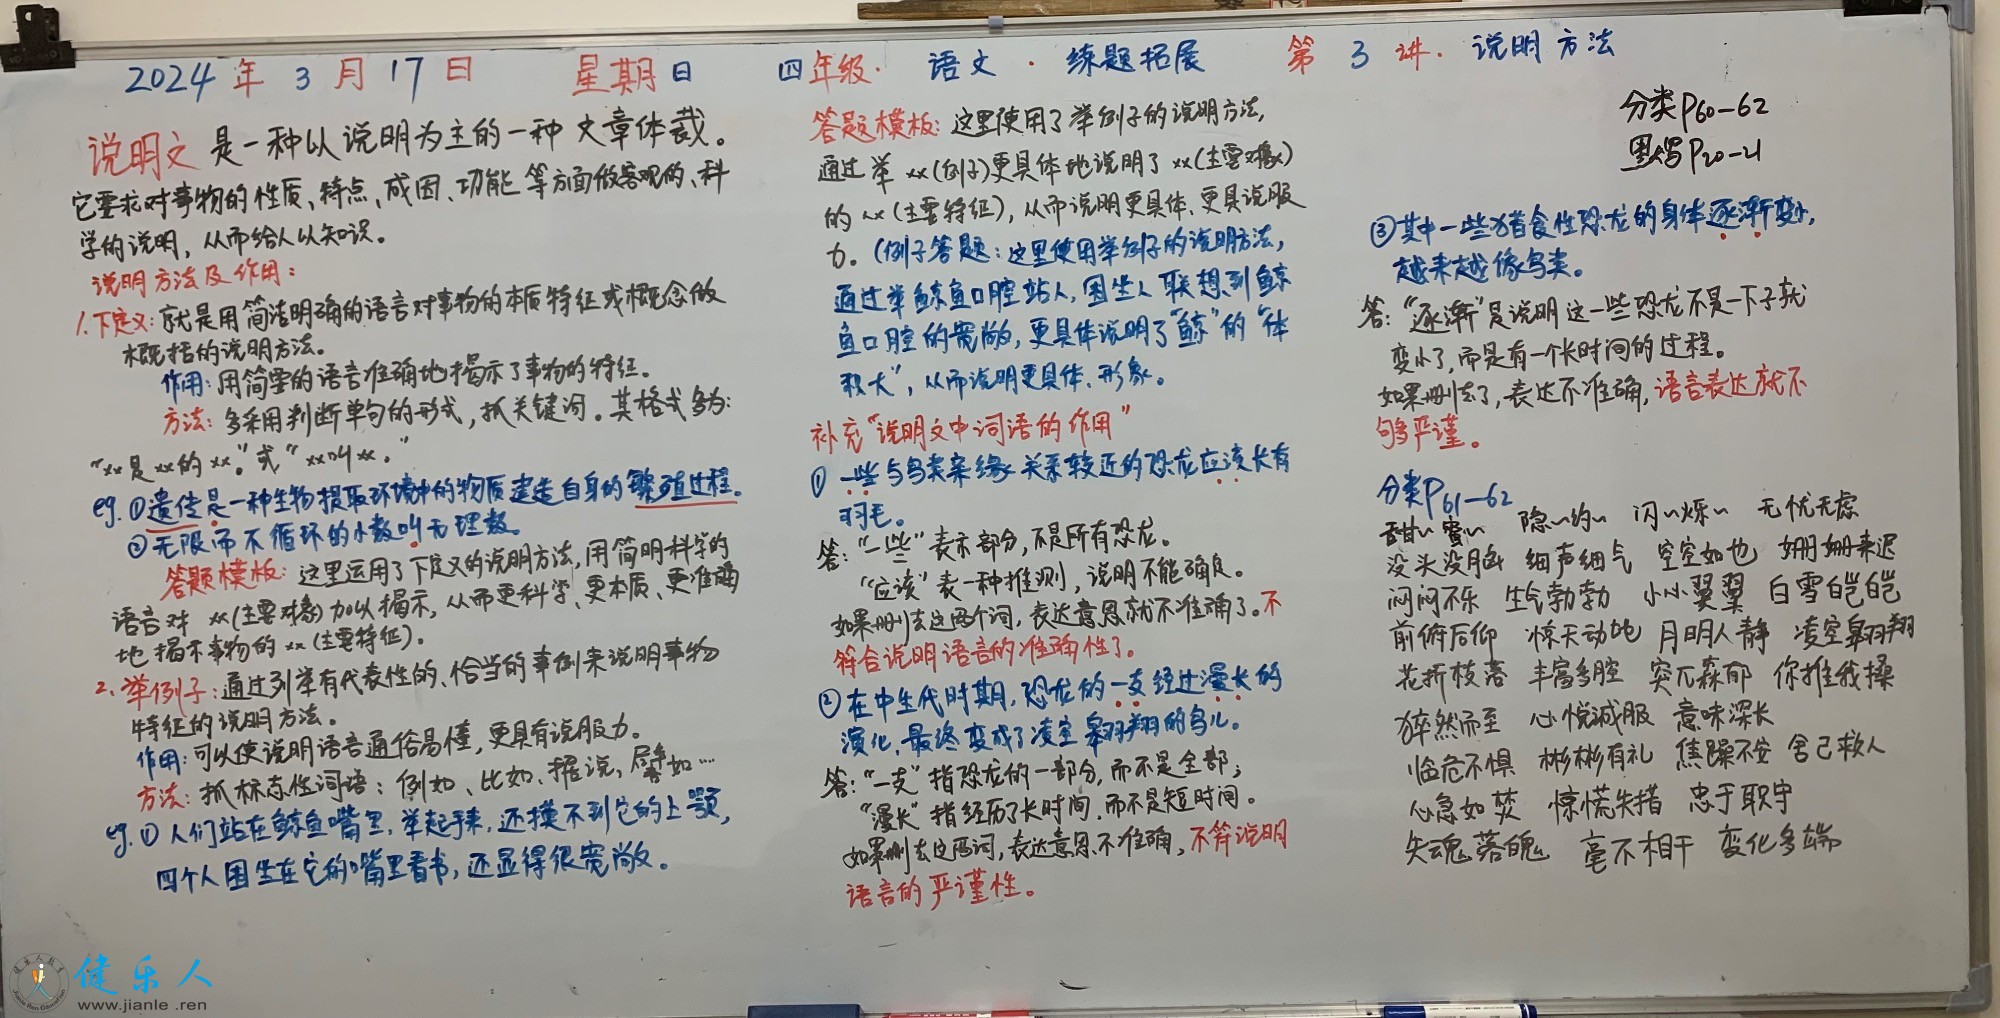 2024年3月17日 星期日 四年级·语文·练题拓展 第3讲·说明方法
说明文是一种以说明为主的一种文章体裁。
它要求对事物的性质、特点、成因、功能等方面做客观的、科
学的说明，从而给人以知识。
说明方法及作用：
1.下定义：就是用简洁明确的语言对事物的本质特征或概念做
概括的说明方法。
作用：用简单的语言准确地揭示了事物的特征。
方法：多采用判断单句的形式，抓关键词。其格式多为：
“xx是xx的xx。”或“xx叫xx。”
eg.①遗传是一种生物摄取环境中的物质建造自身的繁殖过程。
②无限而不循环的小数叫无理数。
答题模板：这里运用了下定义的说明方法，用简明科学的
语言对xx(主要对象)加以揭示，从而更科学、更本质、更准确
地揭示事物的xx(主要特征)。
2.举例子：通过列举有代表性的、恰当的事例来说明事物
特征的说明方法。
作用：可以使说明语言通俗易懂，更具有说服力。
方法：抓标志性词语：例如、比如、据说，譬如…
eg.①人们站在鲸鱼嘴里，举起手来，还摸不到它的上颚，
四个人围坐在它的嘴里看书，还显得很宽敞。
答题模板：这里使用了举例子的说明方法，
通过举xx(例子)更具体地说明了xx(主要对象)
的xx(主要特征)，从而说明更具体、更具说服
力。(例子答题：这里使用举例子的说明方法，
通过举鲸鱼口腔站人，围坐人联想到鲸
鱼口腔的宽敞，更具体说明了“鲸”的“体
积大”，从而说明更具体、形象。
补充“说明文中词语的作用”
①一些与鸟类亲缘关系较近的恐龙应该长有
羽毛。
答：“一些”表示部分，不是所有恐龙。
“应该”表一种推测，说明不能确良。
如果删去这两个词，表达意思就不准确了。不
符合说明语言的准确性了。
②在中生代时期，恐龙的一支经过漫长的
演化，最终变成了凌空翱翔的鸟儿。
答：“一支”指恐龙的一部分，而不是全部；
“漫长”指经历了长时间，而不是短时间。
如果删去这两词，表达意思不准确，不符说明
语言的严谨性。
分类P60-62
P20-21
③其中一些猎食性恐龙的身体逐渐变小，
越来越像鸟类。
答：“逐渐”是说明这一些恐龙不是一下子就
变小了，而是有一个长时间的过程。
如果删去了，表达不准确，语言表达就不
够严谨。
分类P61-62
甜~蜜~ 隐~约~ 闪~烁~ 无忧无虑
没头没脑 细声细气 空空如也 姗姗来迟
闷闷不乐 生气勃勃 小小翼翼 白雪皑皑
前俯后仰 惊天动地 月明人静 凌空翱翔
花折枝落 丰富多腔 突兀森郁 你推我搡
猝然而至 心悦诚服 意味深长
临危不惧 彬彬有礼 焦躁不安 舍己救人
心急如焚 惊慌失措 忠于职守
失魂落魄 毫不相干 变化多端
健乐人
www.jianle.ren